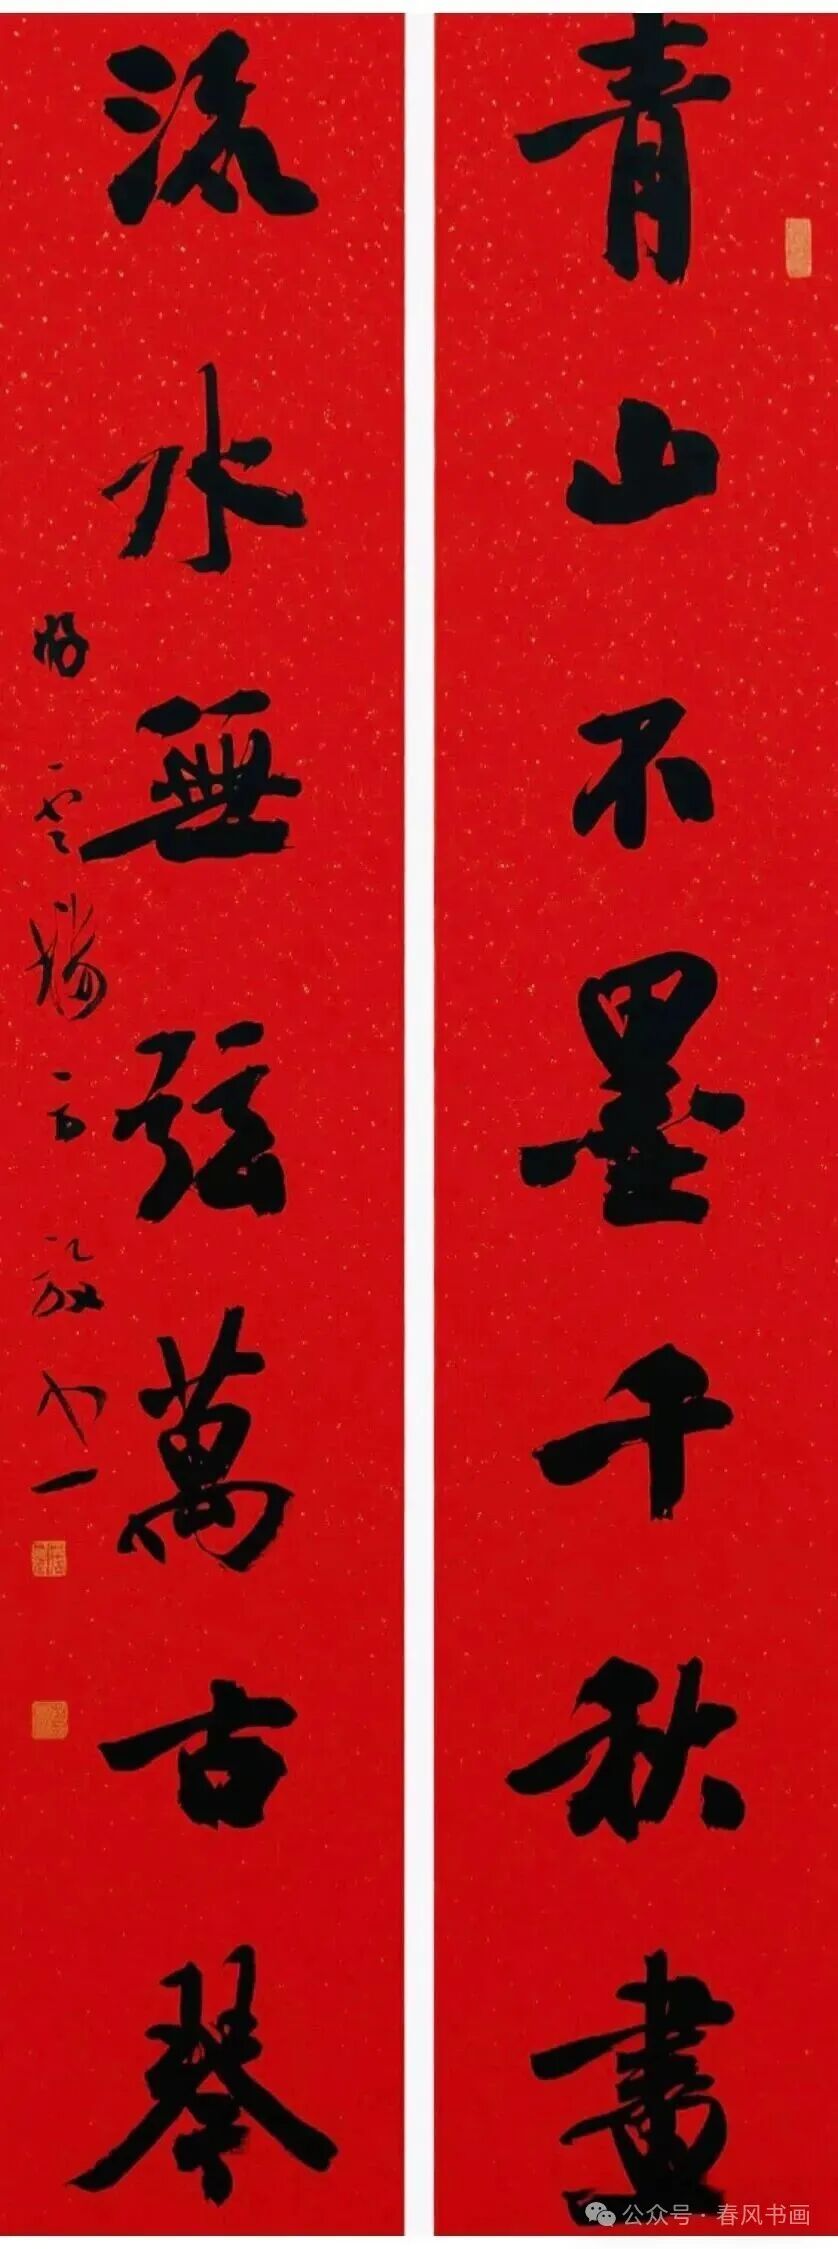 青山不墨千秋畫
流水無弦萬古琴
公众号·春风书画